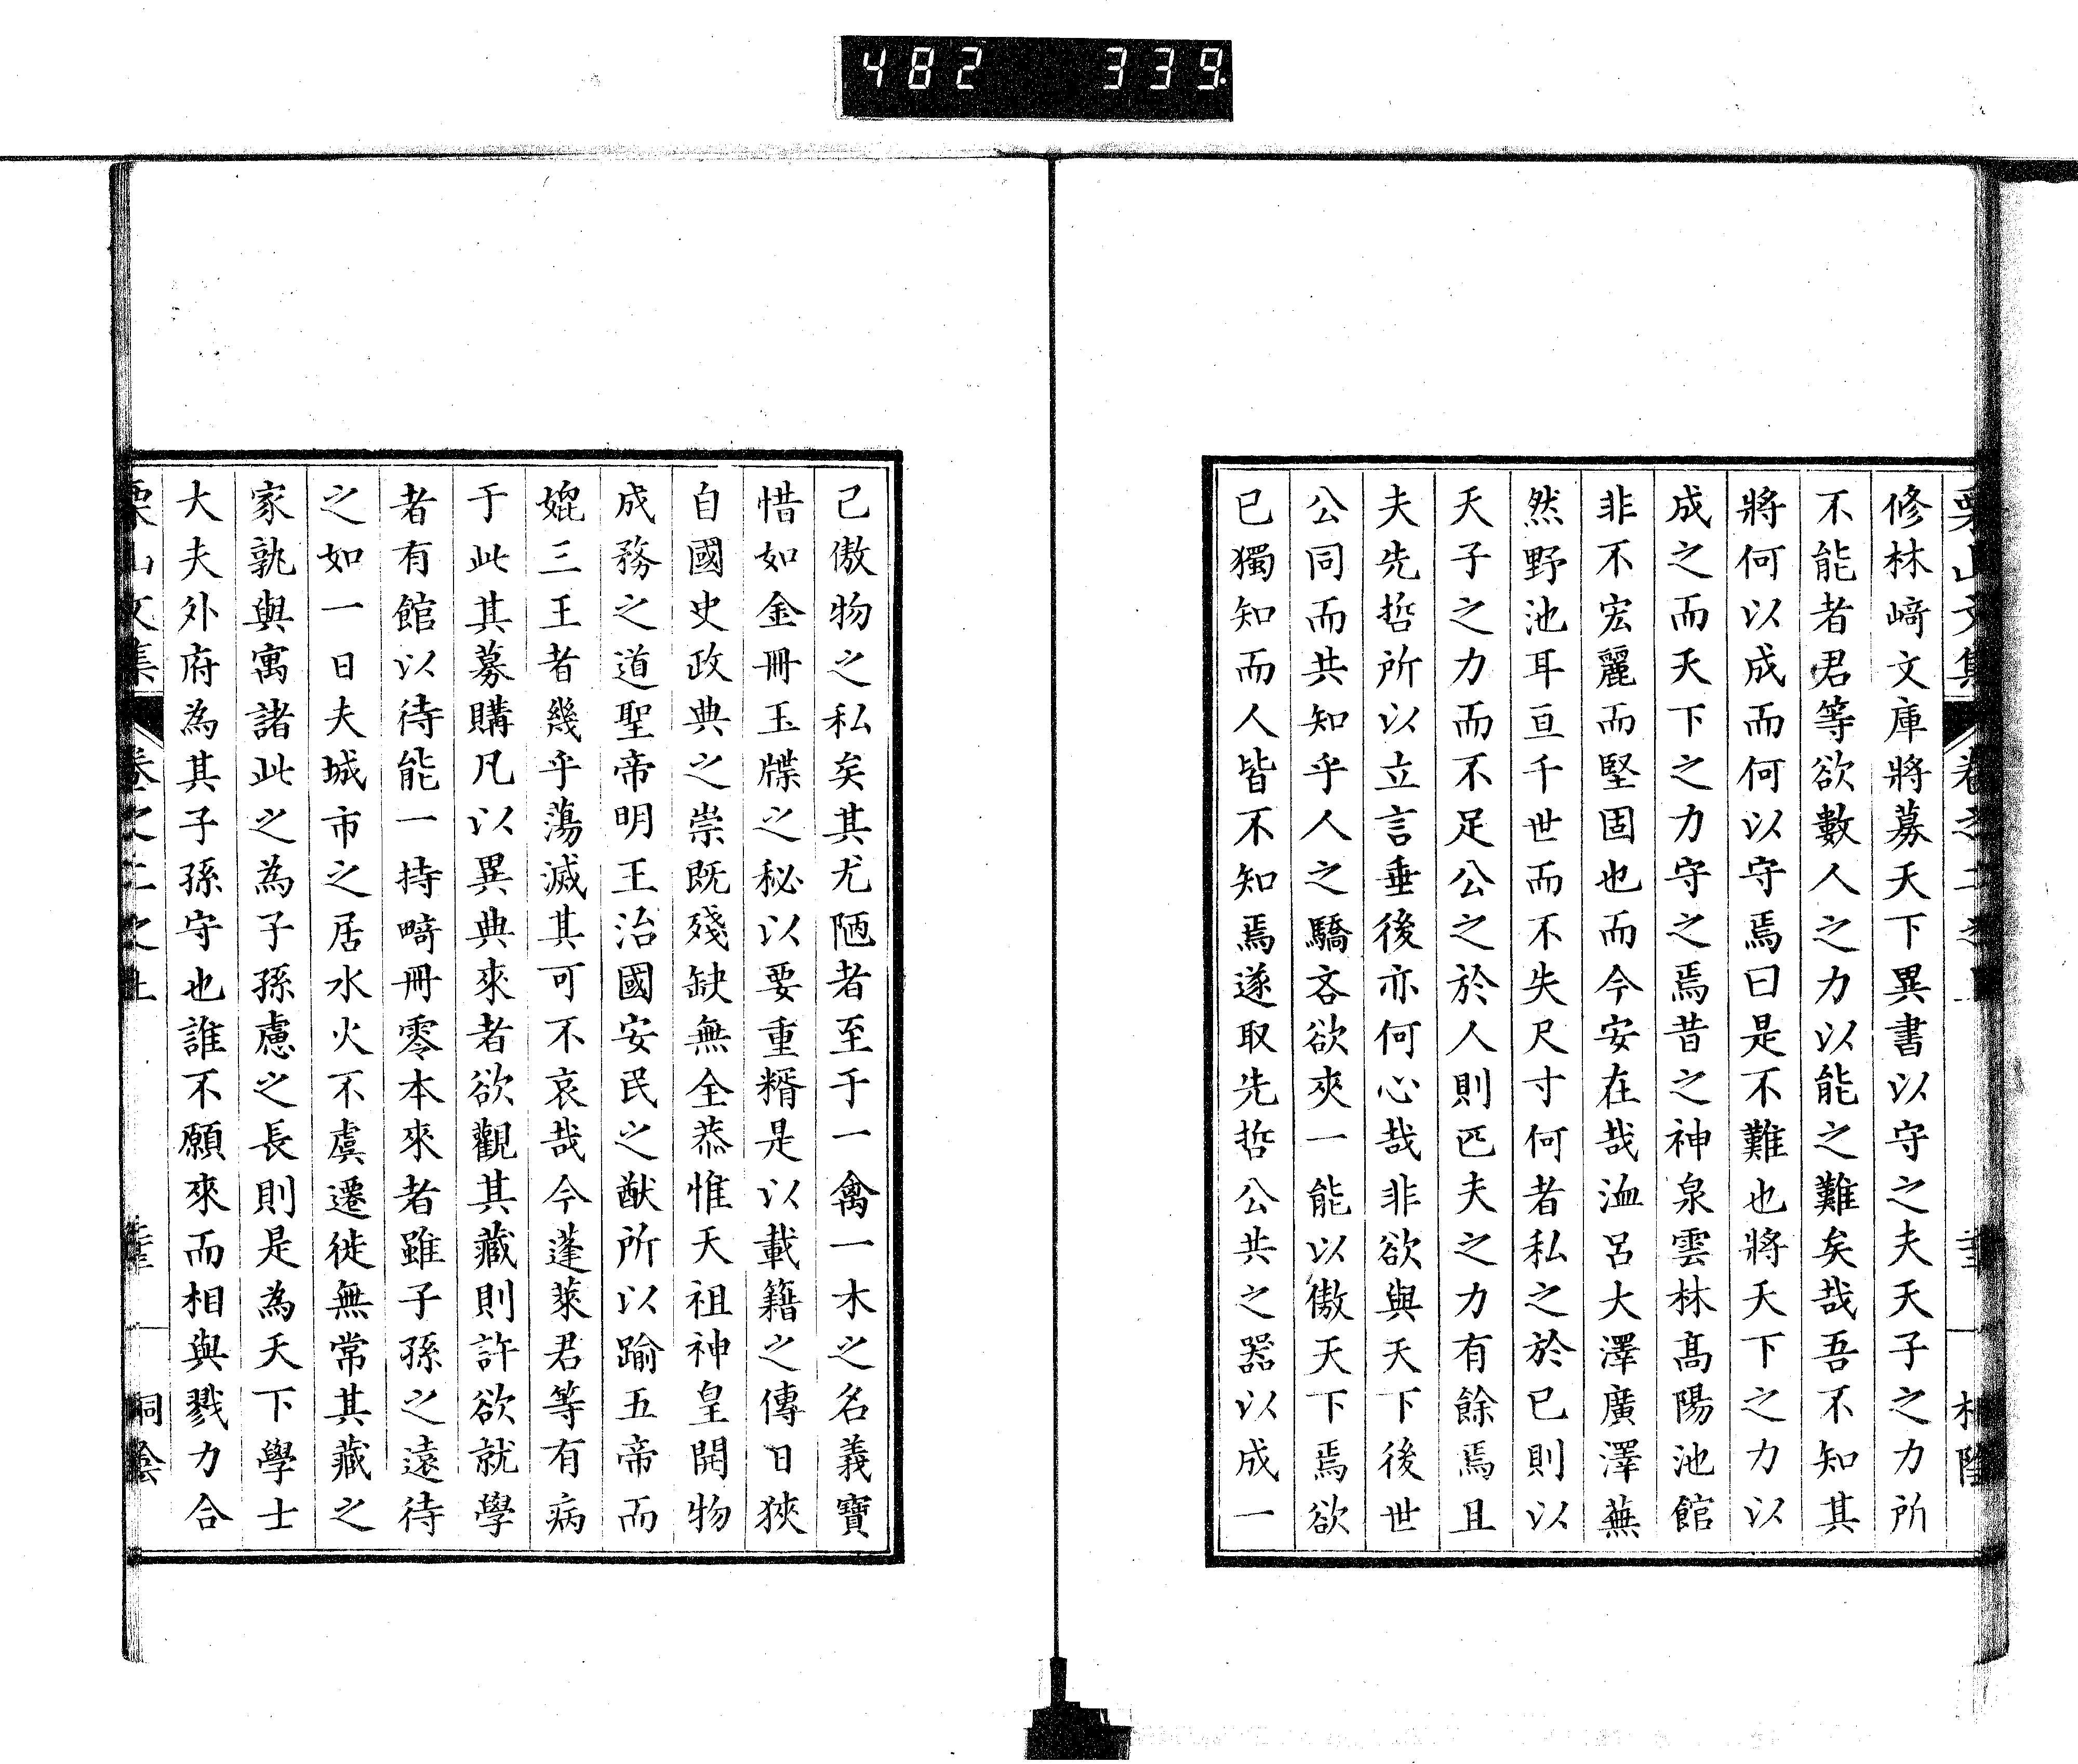 482 339.
修林﨑文庫將募天下異書以守之夫天子之力所
不能者君等欲數人之力以能之難矣哉吾不知其
將何以成而何以守焉曰是不難也將天下之力以
成之而天下之力守之焉昔之神泉雲林髙陽池館
非不宏麗而堅固也而今安在哉洫呂大澤廣澤蕪
然野池耳亘千世而不失尺寸何者私之於已則以
天子之力而不足公之於人則匹夫之力有餘焉且
夫先哲所以立言垂後亦何心哉非欲與天下後世
公同而共知乎人之驕吝欲夾一能以傲天下焉欲
已獨知而人皆不知焉遂取先哲公共之器以成一
己傲物之私矣其尤陋者至于一禽一木之名義寶
惜如金冊玉牒之秘以要重糈是以載籍之傳日狹
自國史政典之崇既殘缺無全恭惟天祖神皇開物
成務之道聖帝明王治國安民之猷所以踰五帝而
媲三王者幾乎蕩滅其可不哀哉今蓬萊君等有病
于此其募購凡以異典來者欲觀其藏則許欲就學
者有館以待能一持畸冊零本來者雖子孫之遠待
之如一日夫城市之居水火不虞遷徙無常其藏之
家孰與寓諸此之為子孫慮之長則是為天下學士
大夫外府為其子孫守也誰不願來而相與戮力合
栗山文集 卷之二之上